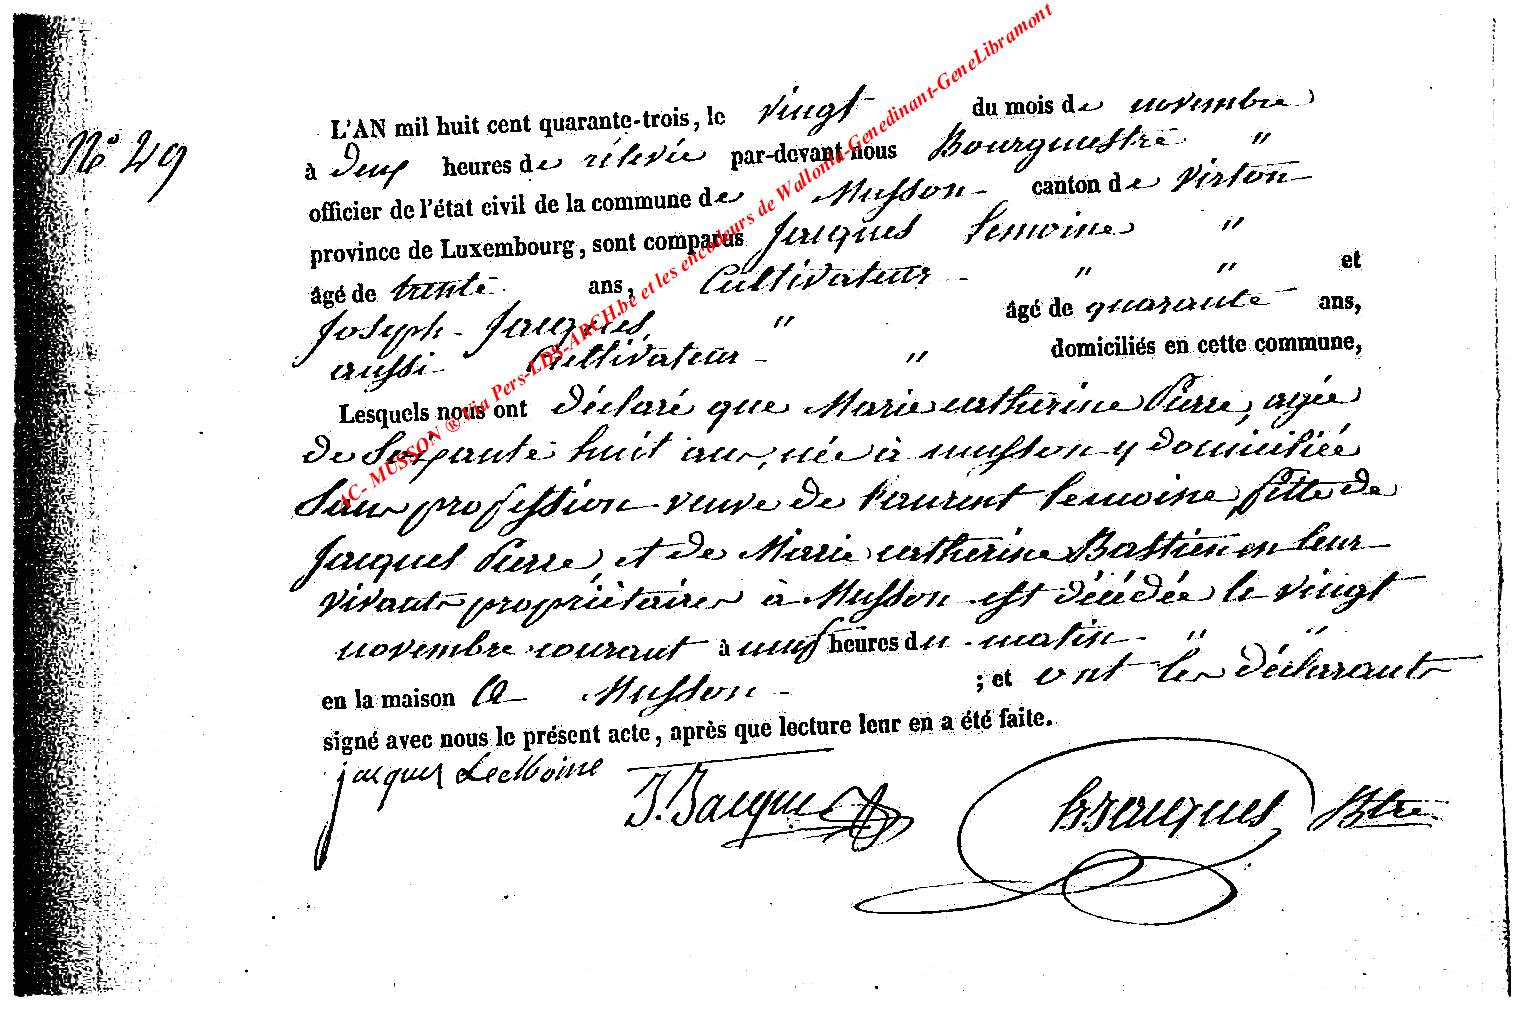 N.° 29
L'AN mil huit cent quarante-trois, le vingt du mois de novembre
à deux heures de relevée par-devant nous Bourguestre "
officier de l'état civil de la commune de Musson - canton de Virton
province de Luxembourg, sont comparus Jacques Lemoine "
âgé de trente ans, Cultivateur - " " et
Joseph Jacques, " âgé de quarante ans,
aussi Cultivateur - " domiciliés en cette commune,
Lesquels nous ont déclaré que Marie catherine Pierre, agée
de Soixante huit ans, née à musson y domiciliée
Sans profession veuve de Laurent Lemoine, fille de
Jacques Pierre, et de Marie catherine Bastien en leur
vivants propriétaires à Musson est décédée le vingt
novembre courant à neuf heures du matin - " "
en la maison à Musson - ; et ont les déclarants
signé avec nous le présent acte, après que lecture leur en a été faite.
jacques LeMoine J. Jacques Jacques Btre
AC- MUSSON ® via Pers-LDS-ARCH.be et les encodeurs de Wallonia-Genedinant-GeneLibramont